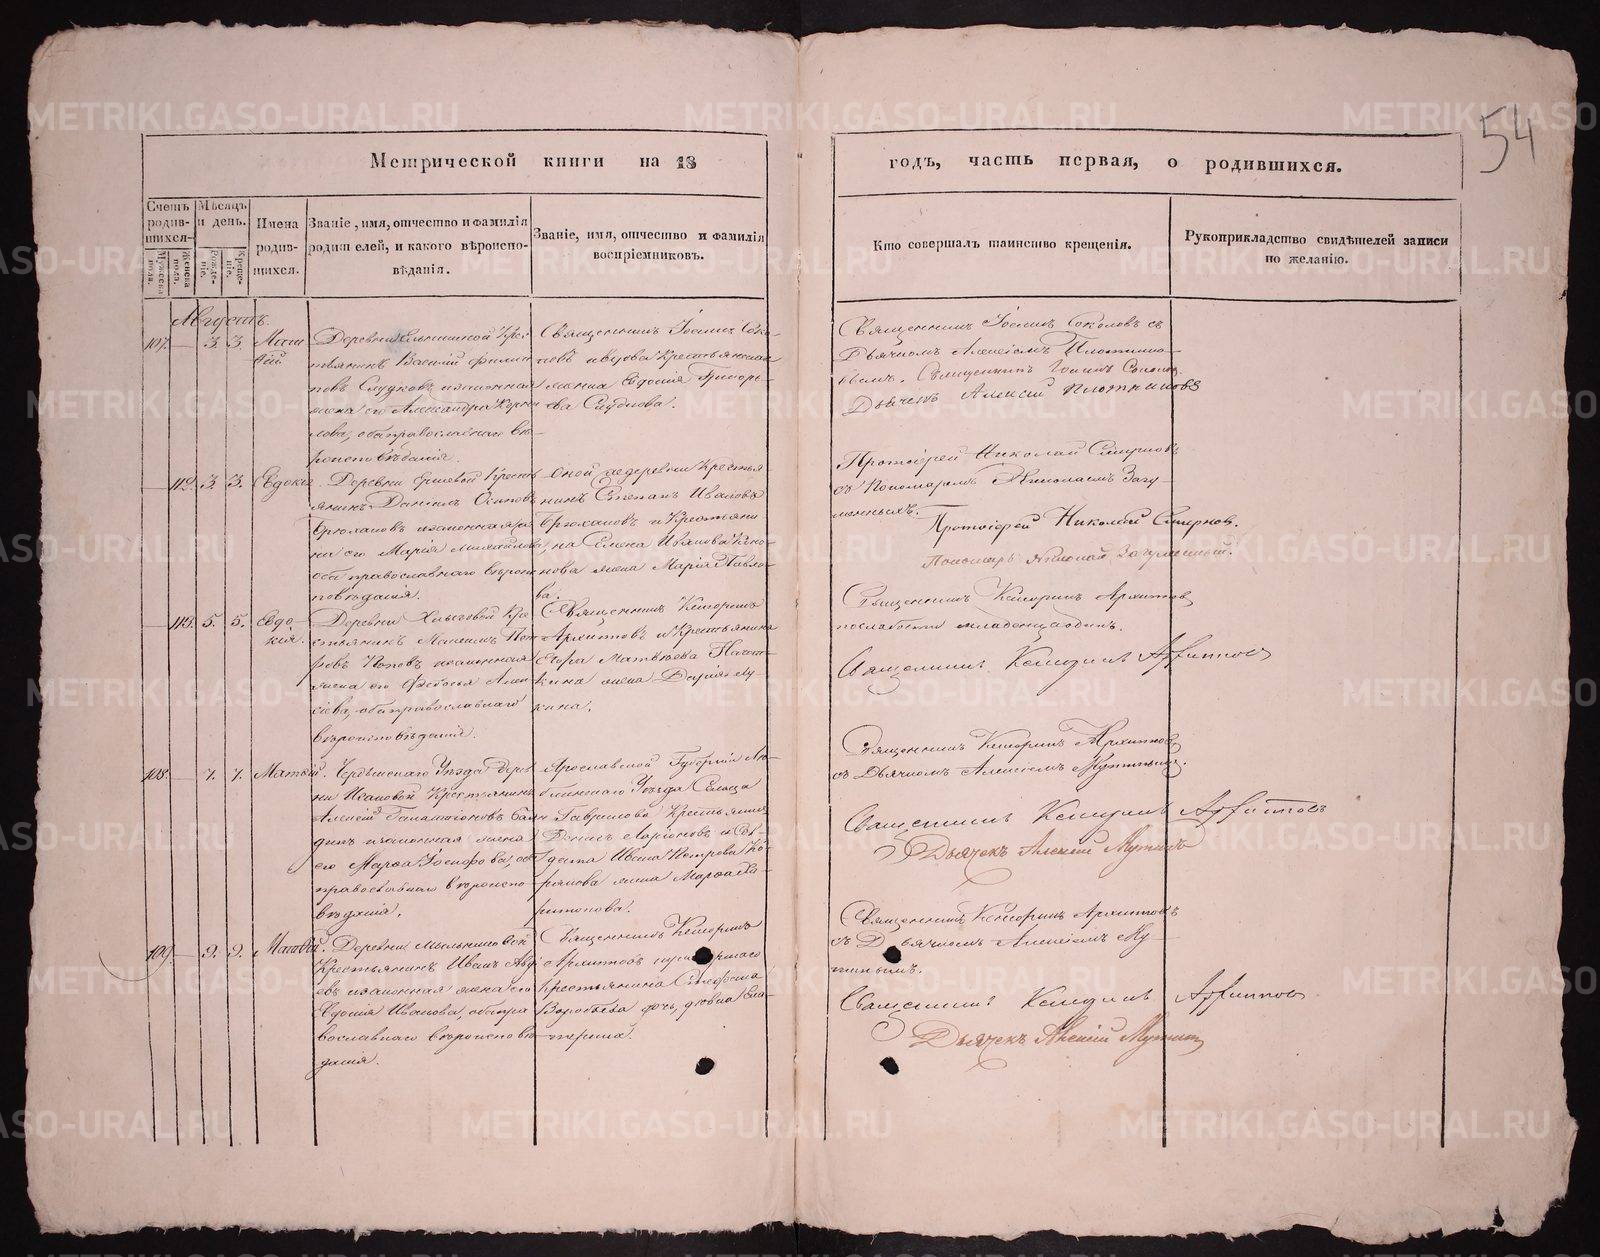 METRIKI.GASO-URAL.RU
54
Метрической книги на 18
годъ, часть первая, о родившихся.
Счетъ родив-шихся
Мужеска пола.
Женска пола.
Мѣсяцъ и день.
Рожде-ніе.
Креще-ніе.
Имена родив-шихся.
Званіе, имя, отчество и фамилія родителей, и какого вѣроиспо-вѣданія.
Званіе, имя, отчество и фамилія воспріемниковъ.
Кто совершалъ таинство крещенія.
Рукоприкладство свидѣтелей записи по желанію.
Августъ.
107. — 3. 3. Мат
вѣй.
Деревни Крес
тьянинъ Василій Филип
повъ законная
жена его Александра Корни
лова, оба православнаго вѣ
роисповѣданія.
Священникъ Іоаннъ Соко-
ловъ и вдова Крестьянская
жена Евдокія Григорь-
ева
Священникъ Іоаннъ Соколовъ съ
Дьячкомъ Алексіемъ Плотнико-
вымъ. Священникъ Іоаннъ Соколовъ
Дьячекъ Алексій Плотниковъ
— 112. 3. 3. Евдокія.
Деревни Кресть
янинъ Даніилъ Осиповъ
Брюхановъ и законная же
на его Марія Михайлова,
оба православнаго вѣроис
повѣданія.
Оной же деревни Крестья
нинъ Степанъ Ивановъ
Брюхановъ и Крестьяни
на Семена Иванова
жена Марія Павло-
ва.
Протоіерей Николай Смирновъ
съ Пономаремъ Николаемъ Загу-
менныхъ.
Протоіерей Николай Смирновъ.
Пономарь Николай Загуменный.
— 113. 5. 5. Евдо-
кія.
Деревни Кре
стьянинъ Максимъ Пет
ровъ Поповъ и законная
жена его Федосья Алек
сіева, оба православнаго
вѣроисповѣданія.
Священникъ Кенсоринъ
Архиповъ и Крестьянина
Егора Матвѣева
жена Дарія Лу-
кина.
Священникъ Кенсоринъ Архиповъ
по слабости младенца одинъ.
Священникъ Кенсоринъ Архиповъ
108. — 7. 7. Матвѣй.
Чердынскаго Уѣзда Дерев
ни Крестьянинъ
Алексій
и законная жена
его Марѳа Іосифова, оба
православнаго вѣроиспо-
вѣданія.
Ярославской Губерніи Лю-
бимскаго Уѣзда Сельца
Гаврилова Крестьянинъ
Денисъ Ларіоновъ и Сол-
дата Ивана Петрова
жена Марѳа
Священникъ Кенсоринъ Архиповъ
съ Дьячкомъ Алексіемъ Мутинымъ.
Священникъ Кенсоринъ Архиповъ
Дьячекъ Алексій Мутинъ
109. — 9. 9. Матвѣй.
Деревни Мыльниковой
Крестьянинъ Иванъ Авд
евъ и законная жена его
Евдокія Иванова, оба пра
вославнаго вѣроисповѣ
данія.
Священникъ Кенсоринъ
Архиповъ и
Крестьянина Стефана
Воробьева дочь, дѣвица Ека
терина.
Священникъ Кенсоринъ Архиповъ
съ Дьячкомъ Алексіемъ Му-
тинымъ.
Священникъ Кенсоринъ Архиповъ
Дьячекъ Алексій Мутинъ